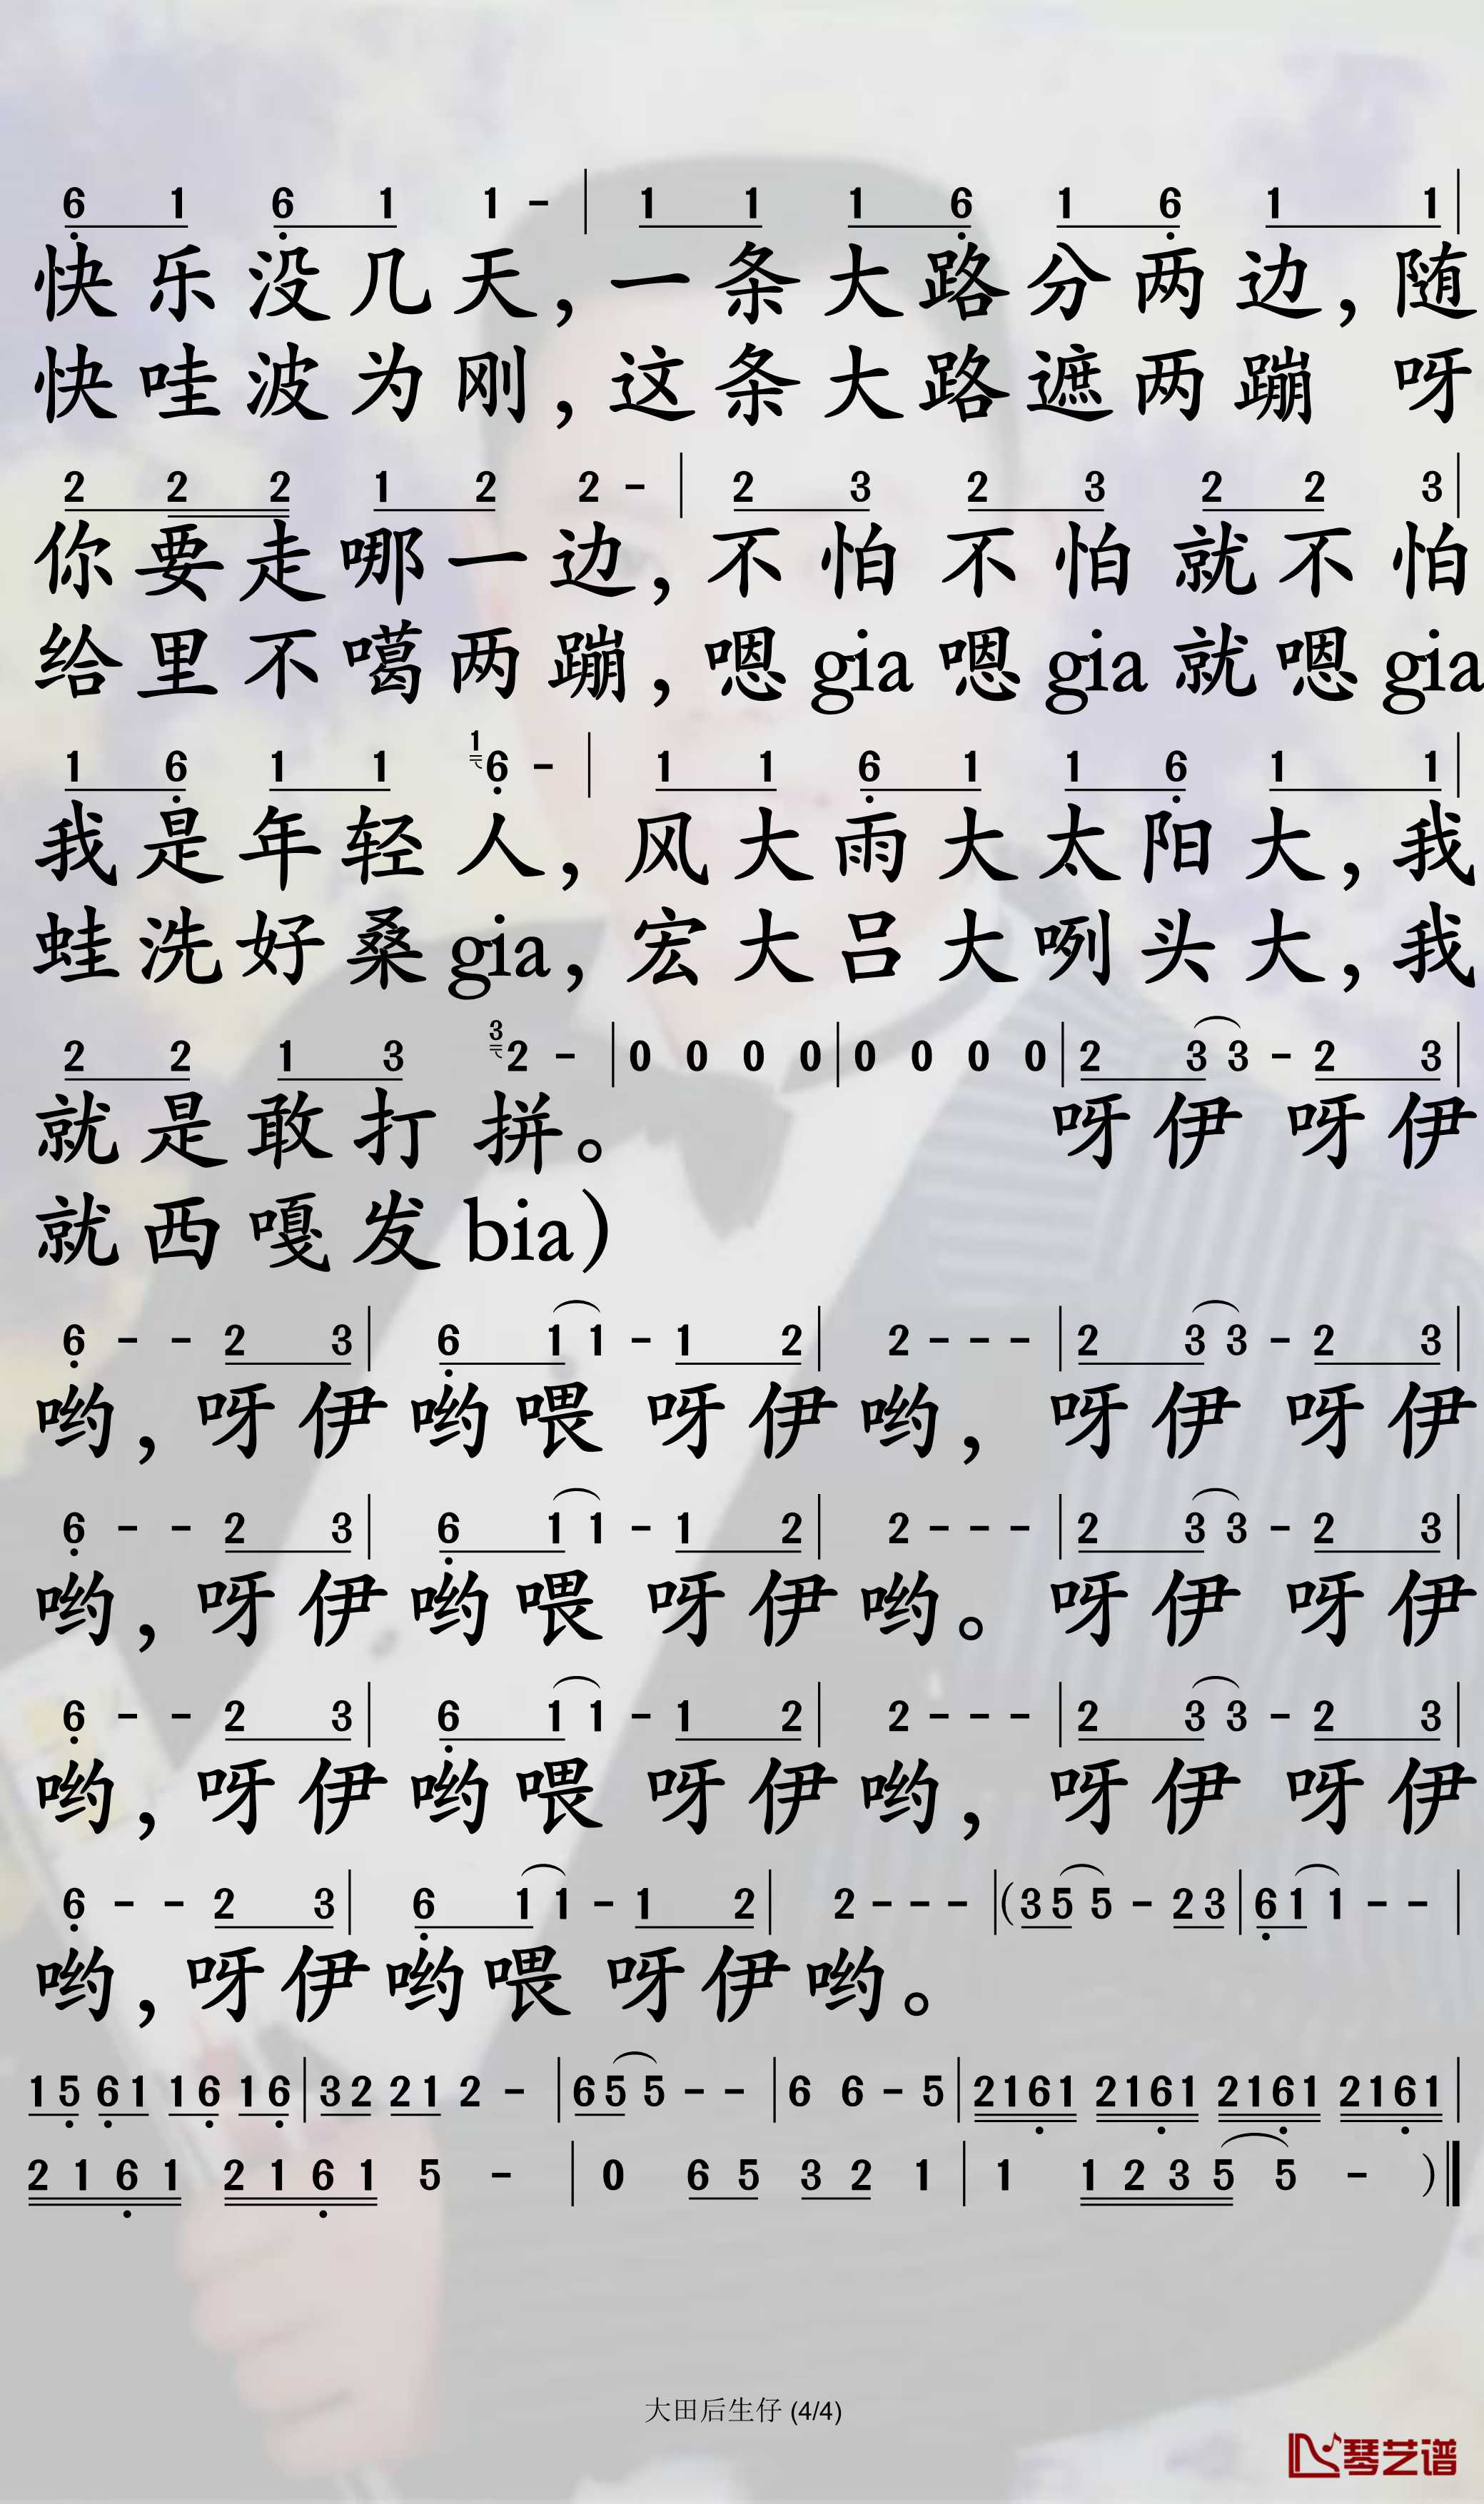 6 1 6 1 1 - | 1 1 1 6 1 6 1 1 |
快乐没几天，一条大路分两边，随
快哇波为刚，这条大路遮两蹦 呀
2 2 2 1 2 2 - | 2 3 2 3 2 2 3 |
你要走哪一边，不怕不怕就不怕
给里不噶两蹦，嗯gia嗯gia就嗯gia
1 6 1 1 1 6 - | 1 1 6 1 1 6 1 1 |
我是年轻人，风大雨大太阳大，我
蛙洗好桑gia，宏大吕大咧头大，我
2 2 1 3 3 2 - | 0 0 0 0 | 0 0 0 0 | 2 3 3 - 2 3 |
就是敢打拼。 呀伊 呀伊
就西嘎发bia）
6 - - 2 3 | 6 1 1 - 1 2 | 2 - - - | 2 3 3 - 2 3 |
哟，呀伊哟喂 呀伊哟， 呀伊 呀伊
6 - - 2 3 | 6 1 1 - 1 2 | 2 - - - | 2 3 3 - 2 3 |
哟，呀伊哟喂 呀伊哟。呀伊 呀伊
6 - - 2 3 | 6 1 1 - 1 2 | 2 - - - | 2 3 3 - 2 3 |
哟，呀伊哟喂 呀伊哟， 呀伊 呀伊
6 - - 2 3 | 6 1 1 - 1 2 | 2 - - - | (3 5 5 - 2 3 | 6 1 1 - - |
哟，呀伊哟喂 呀伊哟。
1 5 6 1 1 6 1 6 | 3 2 2 1 2 - | 6 5 5 - - | 6 6 - 5 | 2161 2161 2161 2161 |
2 1 6 1 2 1 6 1 5 - | 0 6 5 3 2 1 | 1 1 2 3 5 5 - )‖
大田后生仔 (4/4)
琴艺谱